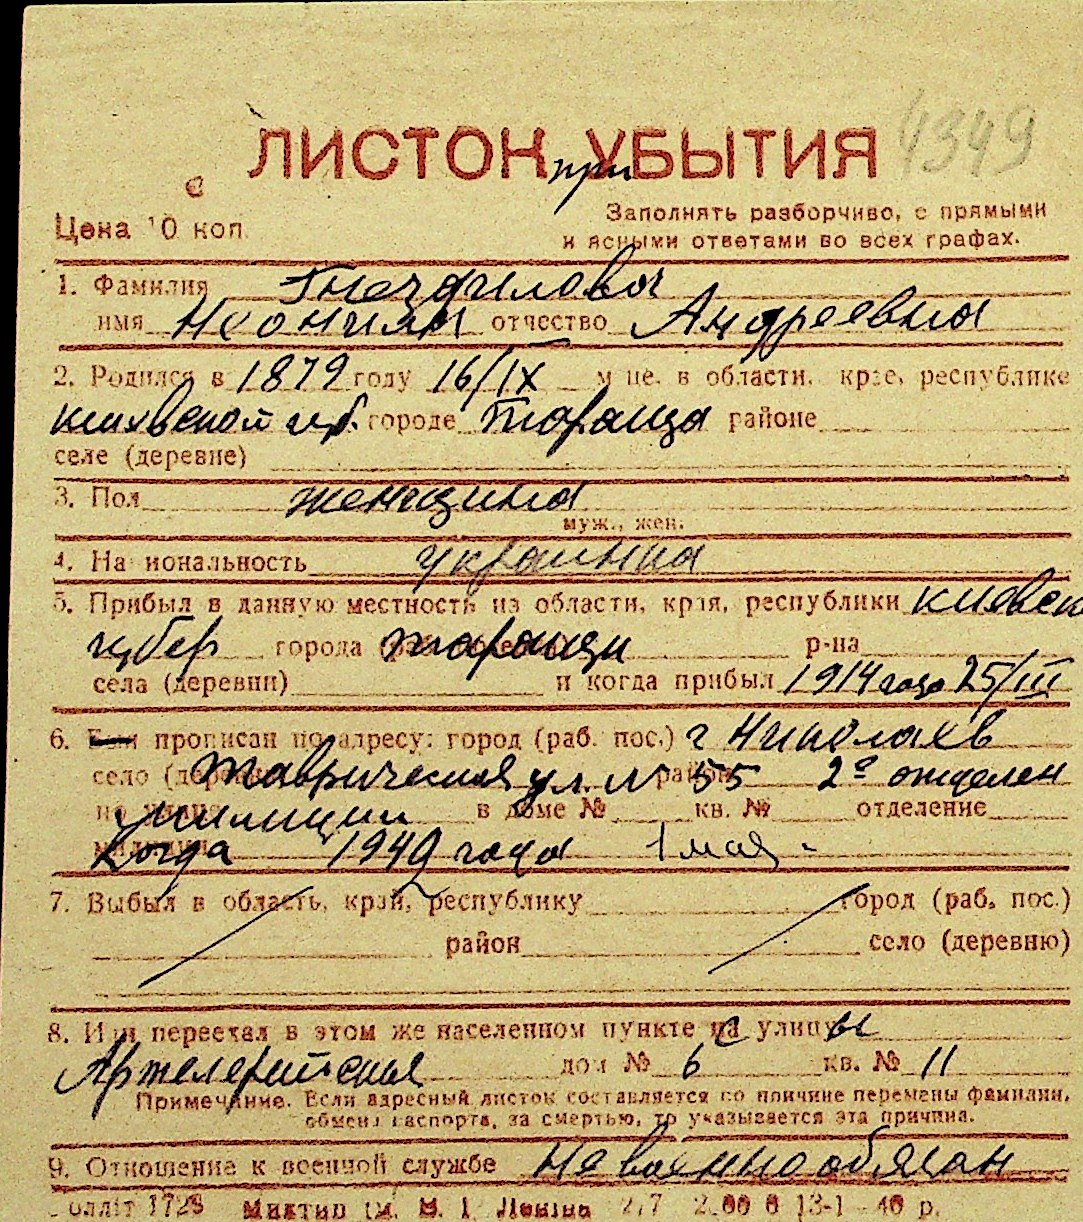 ЛИСТОК УБЫТИЯ 4349
при
Цена 10 коп.
Заполнять разборчиво, с прямыми
и ясными ответами во всех графах.
1. Фамилия Гнездилова
имя Неонила отчество Андреевна
2. Родился в 1879 году 16/IX м-це. в области, крае, республике
киевской губ. городе Тараща районе
селе (деревне)
3. Пол женщина
муж., жен.
4. Национальность украинка
5. Прибыл в данную местность из области, края, республики киевск
губер города таращи р-на
села (деревни) и когда прибыл 1914 года 25/III
6. Был прописан по адресу: город (раб. пос.) г Николаев
село (деревня) Таврическая ул. № 55 район 2е отделен
по улице милиции в доме № кв. № отделение
милиции Когда 1940 года 1 мая.
7. Выбыл в область, край, республику город (раб. пос.)
район село (деревню)
8. Или переехал в этом же населенном пункте на улицу
Артелерийская дом № 6 кв. № 11
Примечание. Если адресный листок составляется по причине перемены фамилии,
обмена паспорта, за смертью, то указывается эта причина.
9. Отношение к военной службе не военнообязан
Миктип ім. В. І. Леніна 40 р.